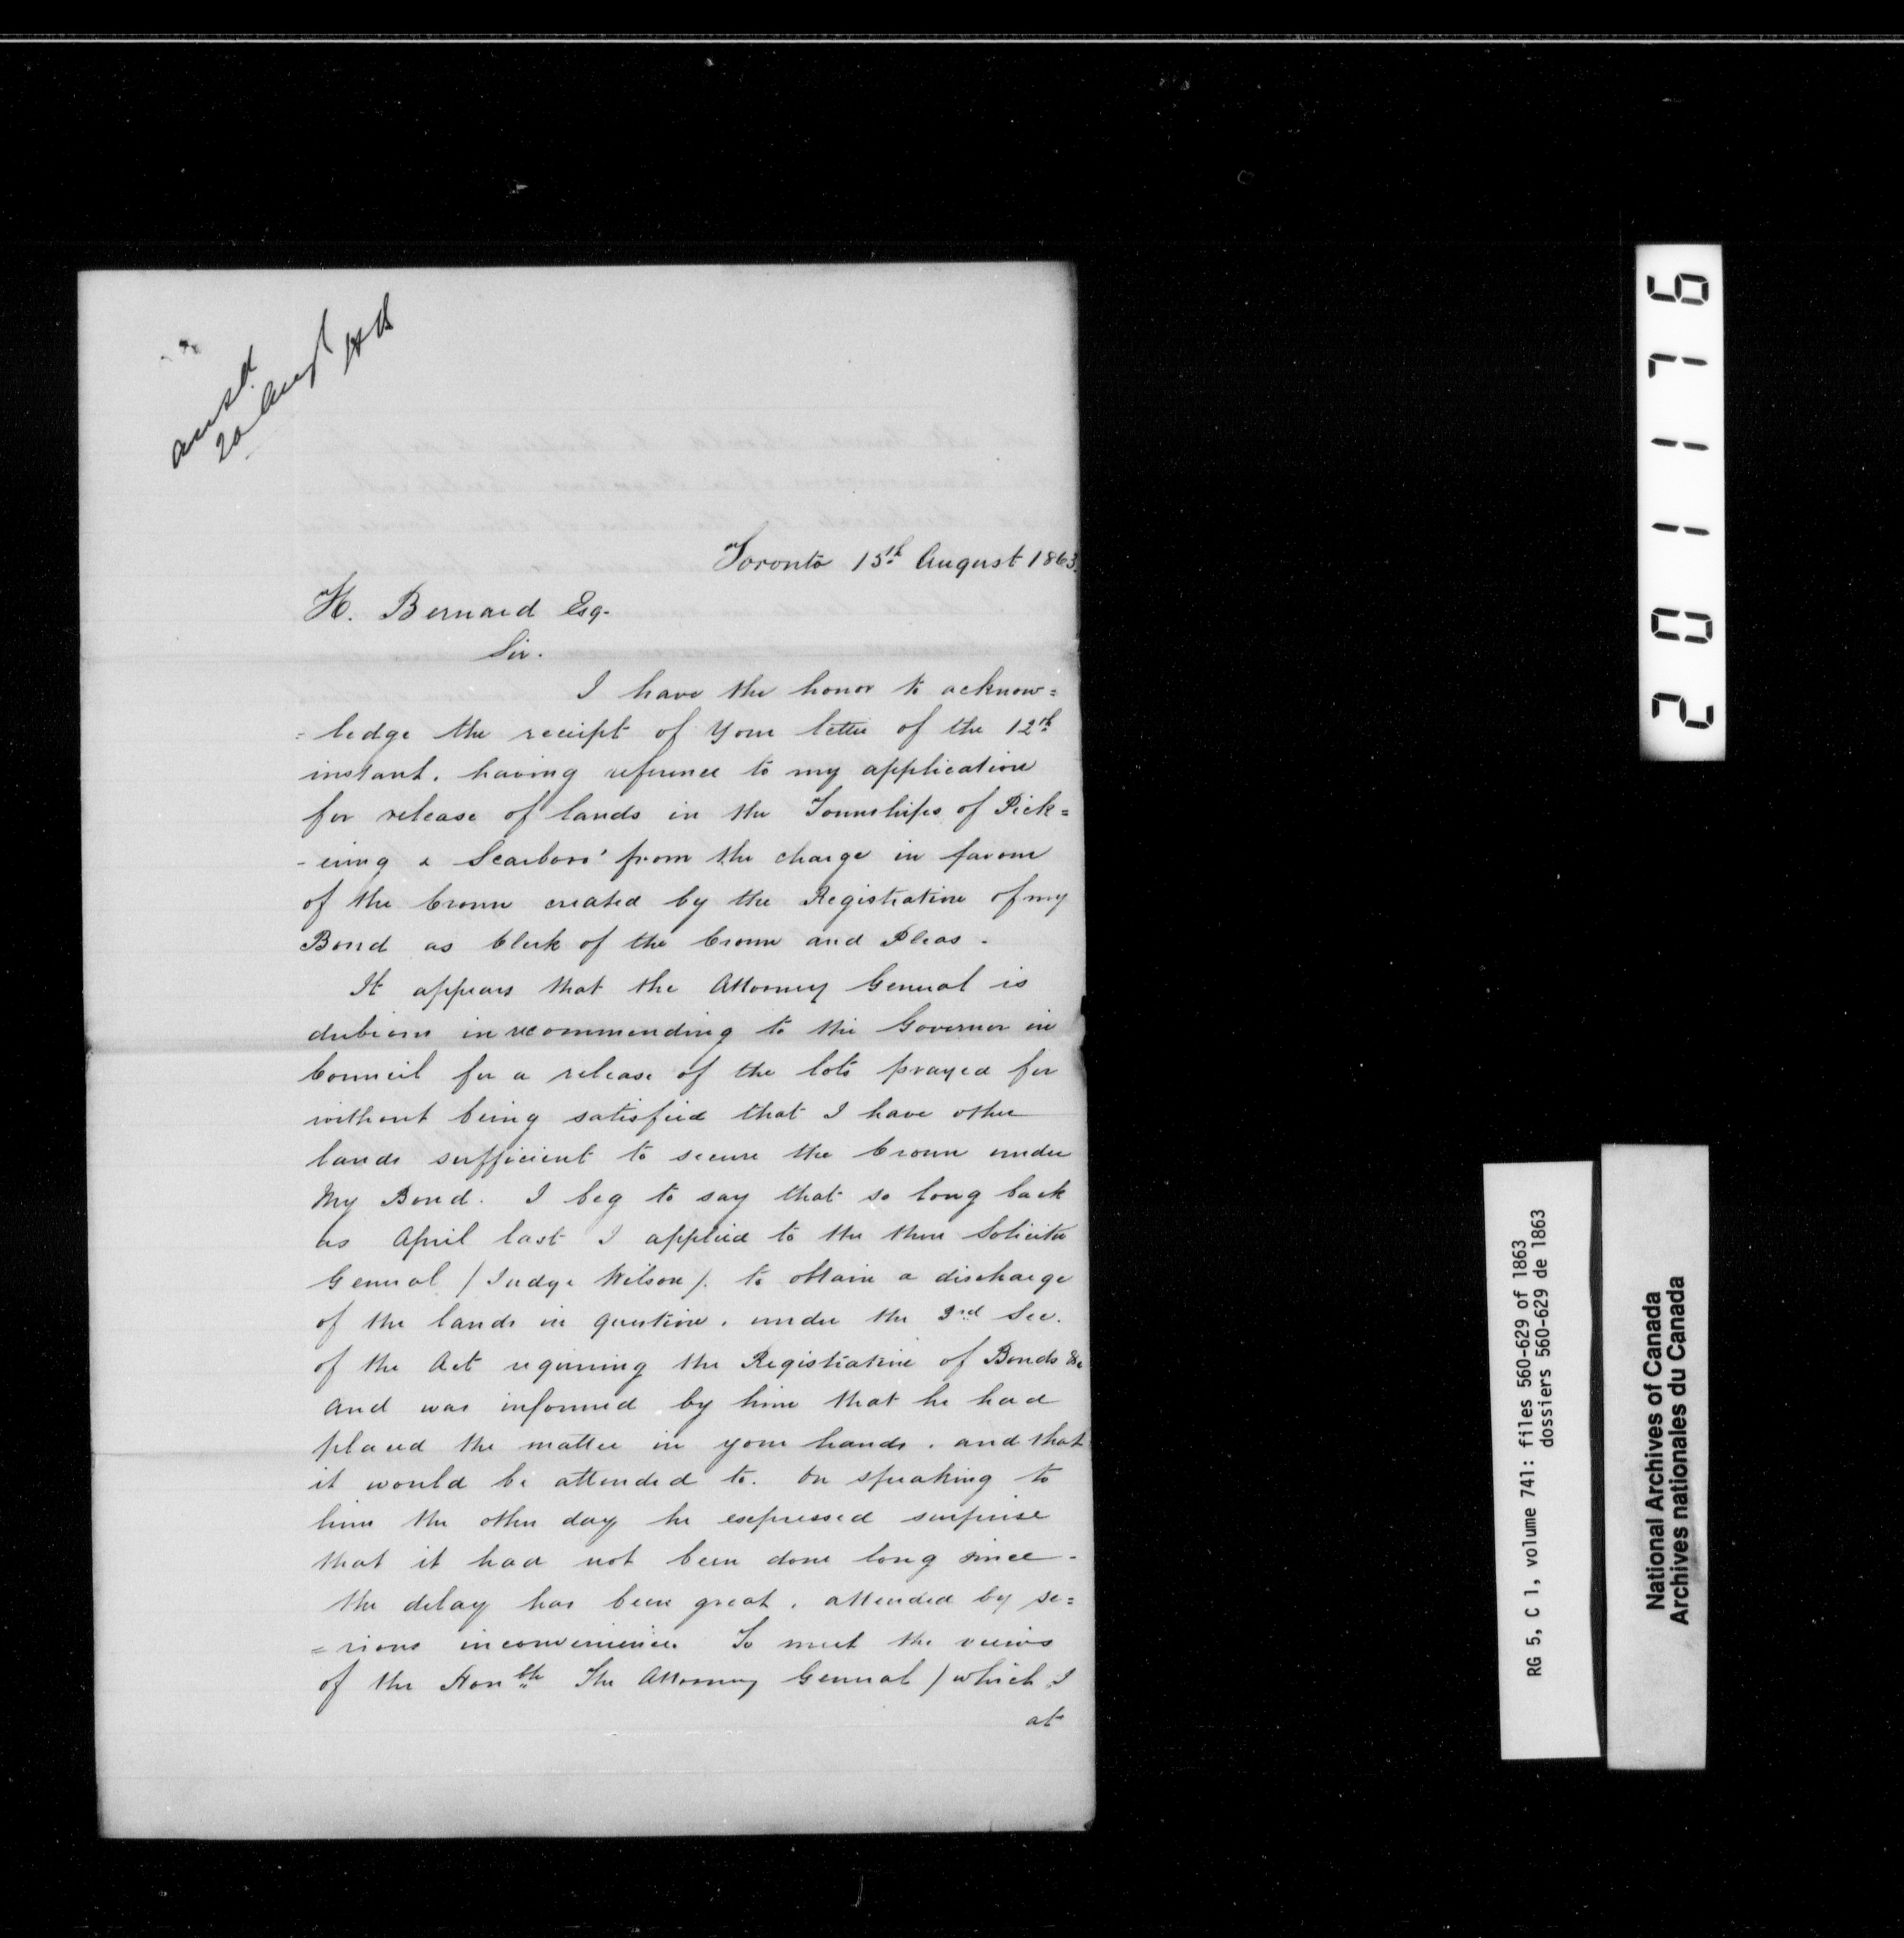 ansd
20 Augt HB
Toronto 15th August 1863.
H. Bernard Esq.
Sir.
I have the honor to acknow=
=ledge the receipt of your letter of the 12th
instant, having reference to my application
for release of lands in the Townships of Pick=
-ering & Scarboro' from the charge in favour
of the Crown created by the Registration of my
Bond as Clerk of the Crown and Pleas.
It appears that the Attorney General is
dubious in recommending to the Governor in
Council for a release of the lots prayed for
without being satisfied that I have other
lands sufficient to secure the Crown under
My Bond. I beg to say that so long back
as April last I applied to the then Solicitor
General (Judge Wilson). to obtain a discharge
of the lands in question, under the 3rd Sec.
of the Act requiring the Registration of Bonds &c
and was informed by him that he had
placed the matter in your hands, and that
it would be attended to. On speaking to
him the other day he expressed surprise
that it had not been done long since -
the delay has been great, attended by se=
=rious inconvenience. To meet the views
of the Honble The Attorney General (which I
at
201176
RG 5, C 1, volume 741: files 560-629 of 1863
dossiers 560-629 de 1863
National Archives of Canada
Archives nationales du Canada